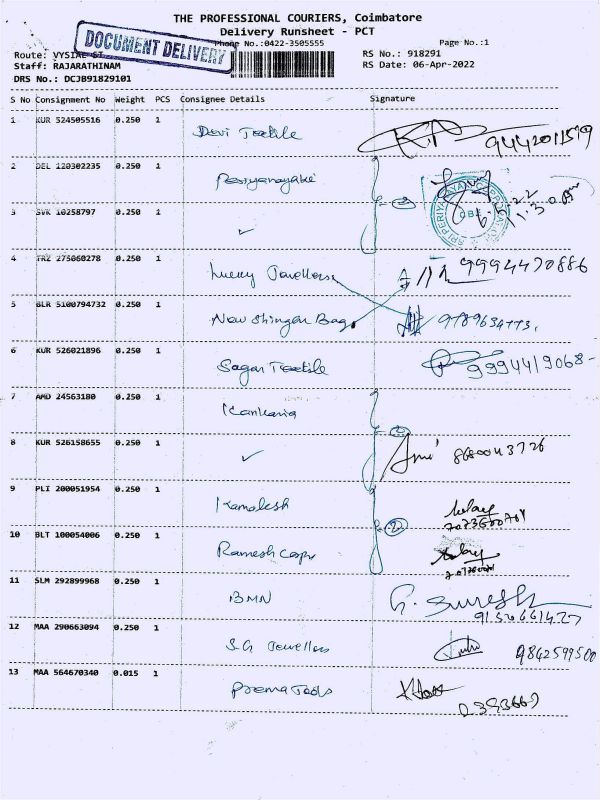 THE PROFESSIONAL COURIERS, Coimbatore
Delivery Runsheet - PCT
DOCUMENT DELIVERY
Phone No.:0422-3505555
Page No.:1
Route: VYSIAL ST
RS No.: 918291
Staff: RAJARATHINAM
RS Date: 06-Apr-2022
DRS No.: DCJB91829101
S No Consignment No Weight PCS Consignee Details Signature
1 KUR 524505516 0.250 1 Devi Textile 9442011519
2 DEL 120302235 0.250 1 Periyanayaki
3 SVK 10258797 0.250 1 ✓
4 TRZ 275060278 0.250 1 Lucky Jewellers 9994470886
5 BLR 5100794732 0.250 1 New Shingar Bags 9789634773
6 KUR 526021896 0.250 1 Sagar Textile 9994419068
7 AMD 24563180 0.250 1 Kankaria
8 KUR 526158655 0.250 1 ✓ 8680043726
9 PLI 200051954 0.250 1 Kamalesh
10 BLT 100054006 0.250 1 Ramesh
11 SLM 292899968 0.250 1 BMN G. Suresh
12 MAA 290663094 0.250 1 S.G Jewellers 9842599500
13 MAA 564670340 0.015 1 Prema Tools